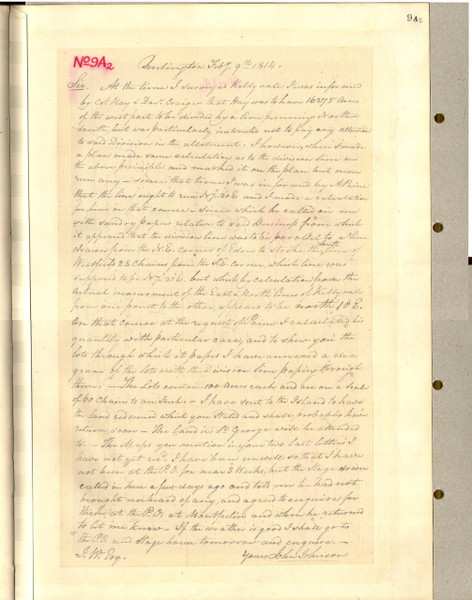 9A2
No 9A2
Burlington Feby. 9th 1814.
Sir. At the time I surveyed Kellyvale I was informed
by Col. Hay & Davd. Craige that Hay was to have 16275 Acres
of the west part to be divided by a line running North &
South, but was particularly instructed not to pay any attention
to said Division in the allotment. I however, when I made
a plan made some calculation as to the division line on
the above principle and marked it on the plan but never
run any - since that time I was informed by A Paine
that the line ought to run N 7° 30 E and I made a calculation
for him on that course - since which he called on me
with sundry papers relative to said Division from which
it appeared that the division line was to be parallel to a line
drawn from the N.E. Corner of Eden to the South line of
Westfield 23 Chains from the S.E. corner, which line was
supposed to be N 7° 30 E. but which by calculation from the
actual measurement of the East & North lines of Kellyvale
from one point to the other, appears to be north 10 E.
on that course at the request of Paine I calculated his
quantity with particular care, and to shew you the
lots through which it passes I have annexed a
of the lots with the division line passing through
them. - The Lots contain 100 acres each and are on a Scale
of 60 Chains to an Inch. - I have sent to the Island to have
the land redeemed which you stated and shall probably have
return soon - The Land in St. George will be attended
to. - The Maps you mention in your two last letters I
have not yet recd. I have been unwell so that I have
not been at the P.O. for near 3 Weeks, but the Stage driver
called in here a few days ago and told me he had not
brought nor heard of any, and agreed to enquire for
them at the P.O. at Montpelier and when he returned
to let me know - If the weather is good I shall go to
the P.O. and Stage house tomorrow and enquire. -
J. W. Esq. Yours John Johnson